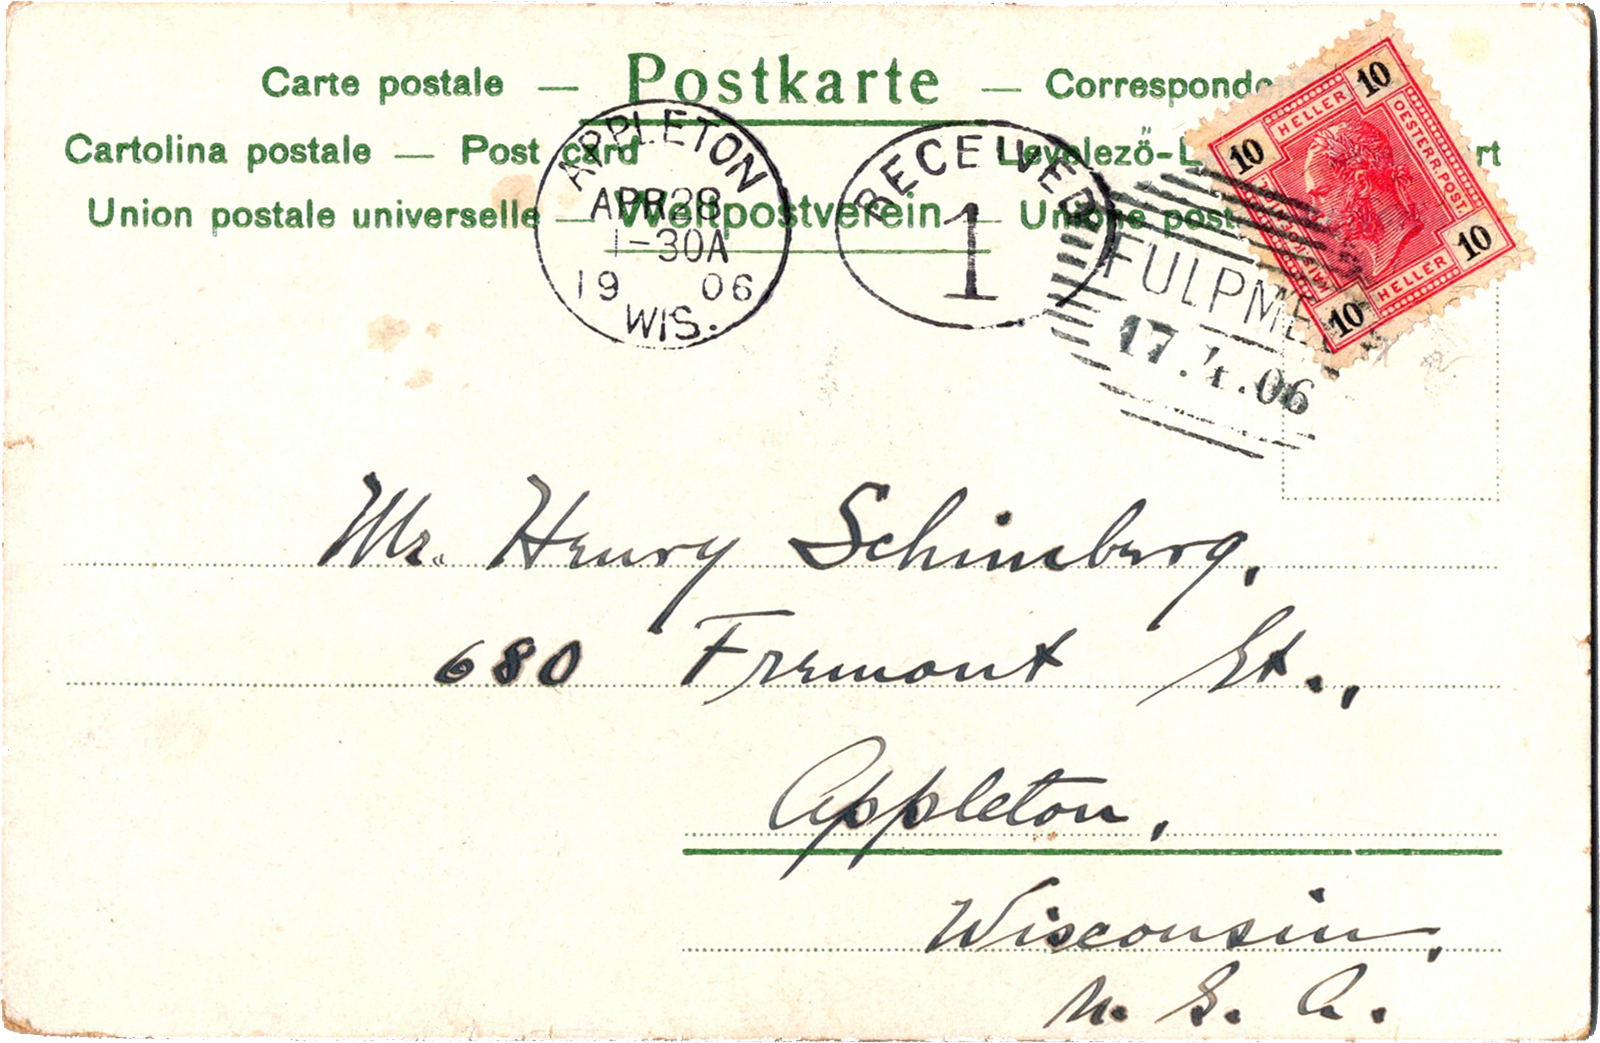 Carte postale — Postkarte — Corresponde
Cartolina postale — Post card Levelező-L rt
Union postale universelle — Weltpostverein — Unione post
APPLETON
APR 28
1-30A
19 06
WIS.
RECEIVED
1
FULPME
17.4.06
10 HELLER 10
OESTERR. POST.
10 HELLER 10
Mr. Henry Schimberg,
680 Fremont St.,
Appleton,
Wisconsin,
U. S. A.